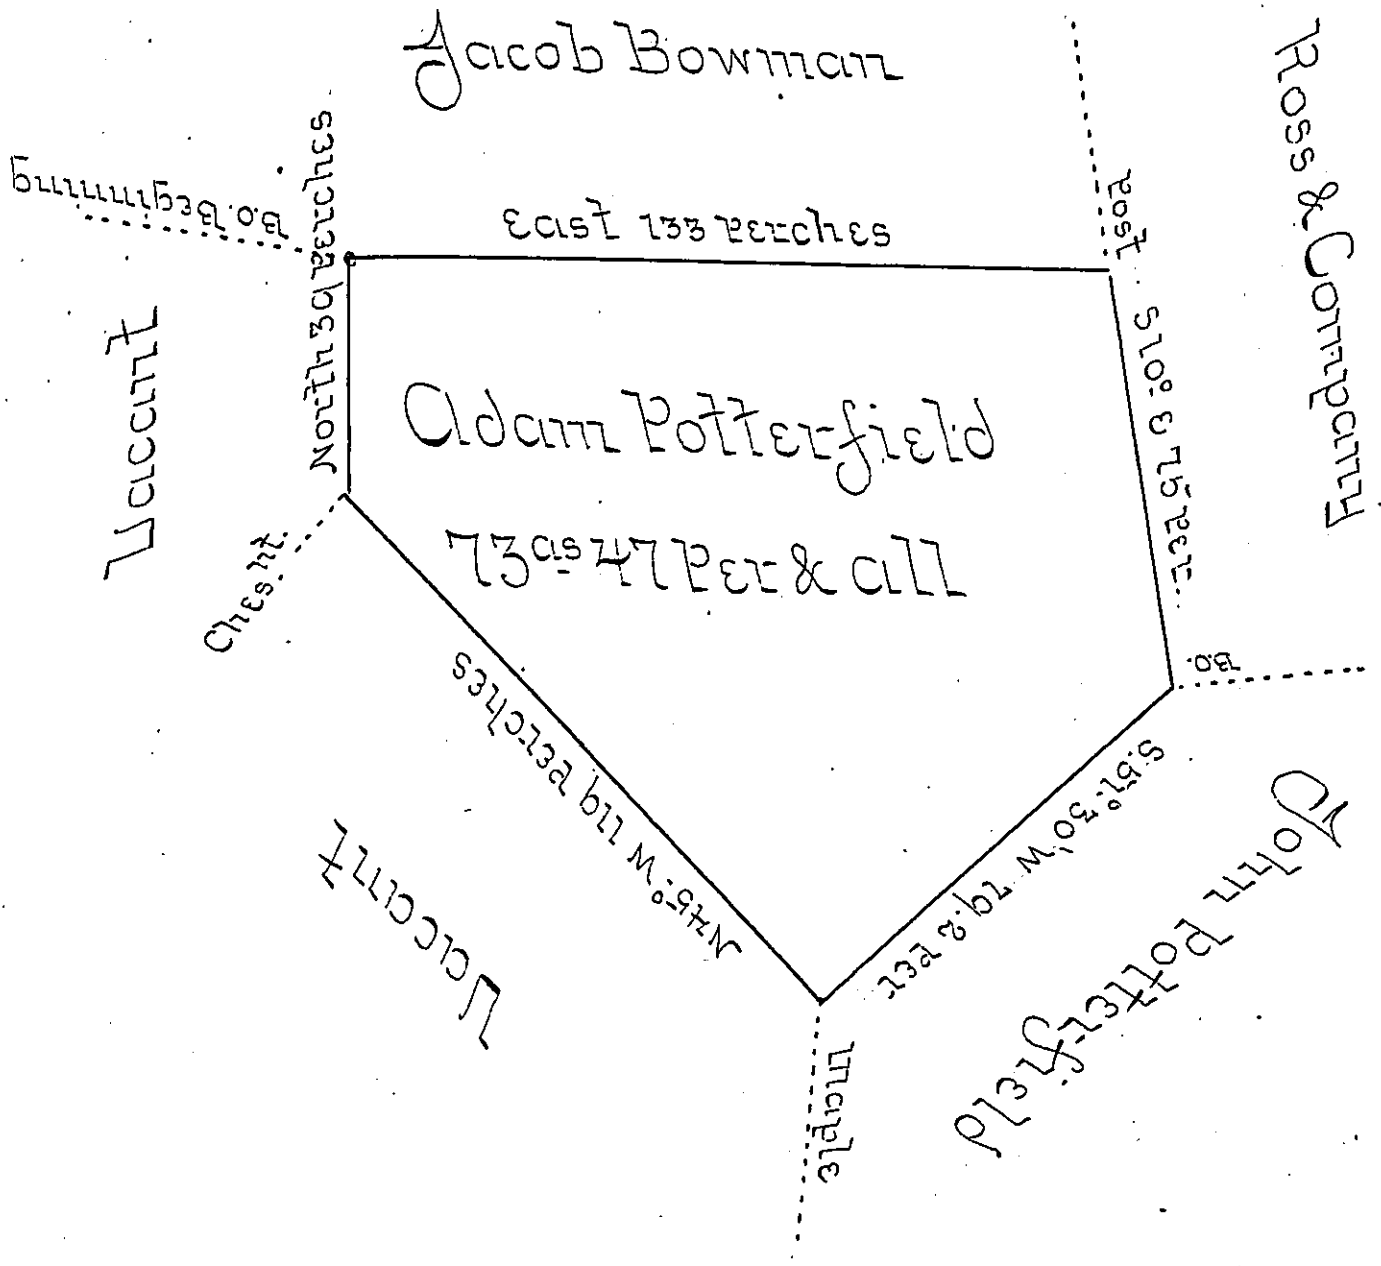 Jacob Bowman
Ross & Company
B.O. Begining
North 39 Perches
East 133 Perches
Post
Vacant
Adam Potterfield
73 as 47 Per & all
Ches.nt.
B.O.
N 45° W 119 Perches
Vacant
Maple
John Potterfield